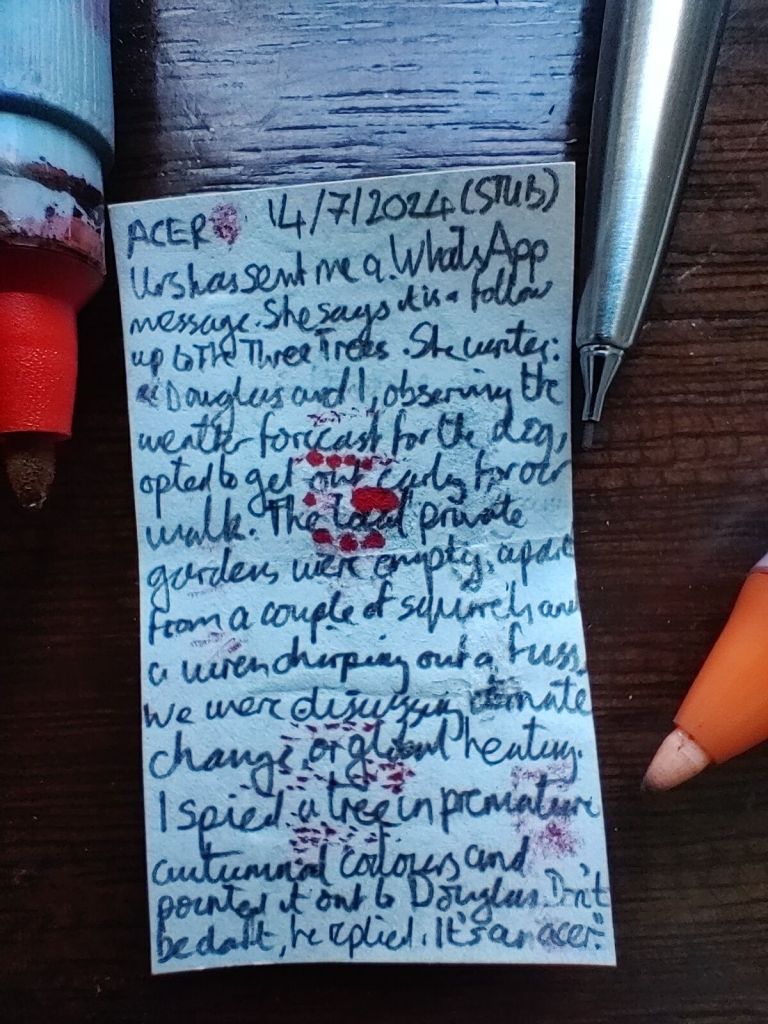 ACER 14/7/2024 (STUB)
Urs has sent me a WhatsApp
message. She says it is a follow
up to The Three Trees. She writes:
"Douglas and I, observing the
weather forecast for the day,
opted to get out early for our
walk. The local private
gardens were empty, apart
from a couple of squirrels and
a wren chirping out a fuss.
We were discussing climate
change, or global heating.
I spied a tree in premature
autumnal colours and
pointed it out to Douglas. Don't
be daft, he replied. It's an acer."